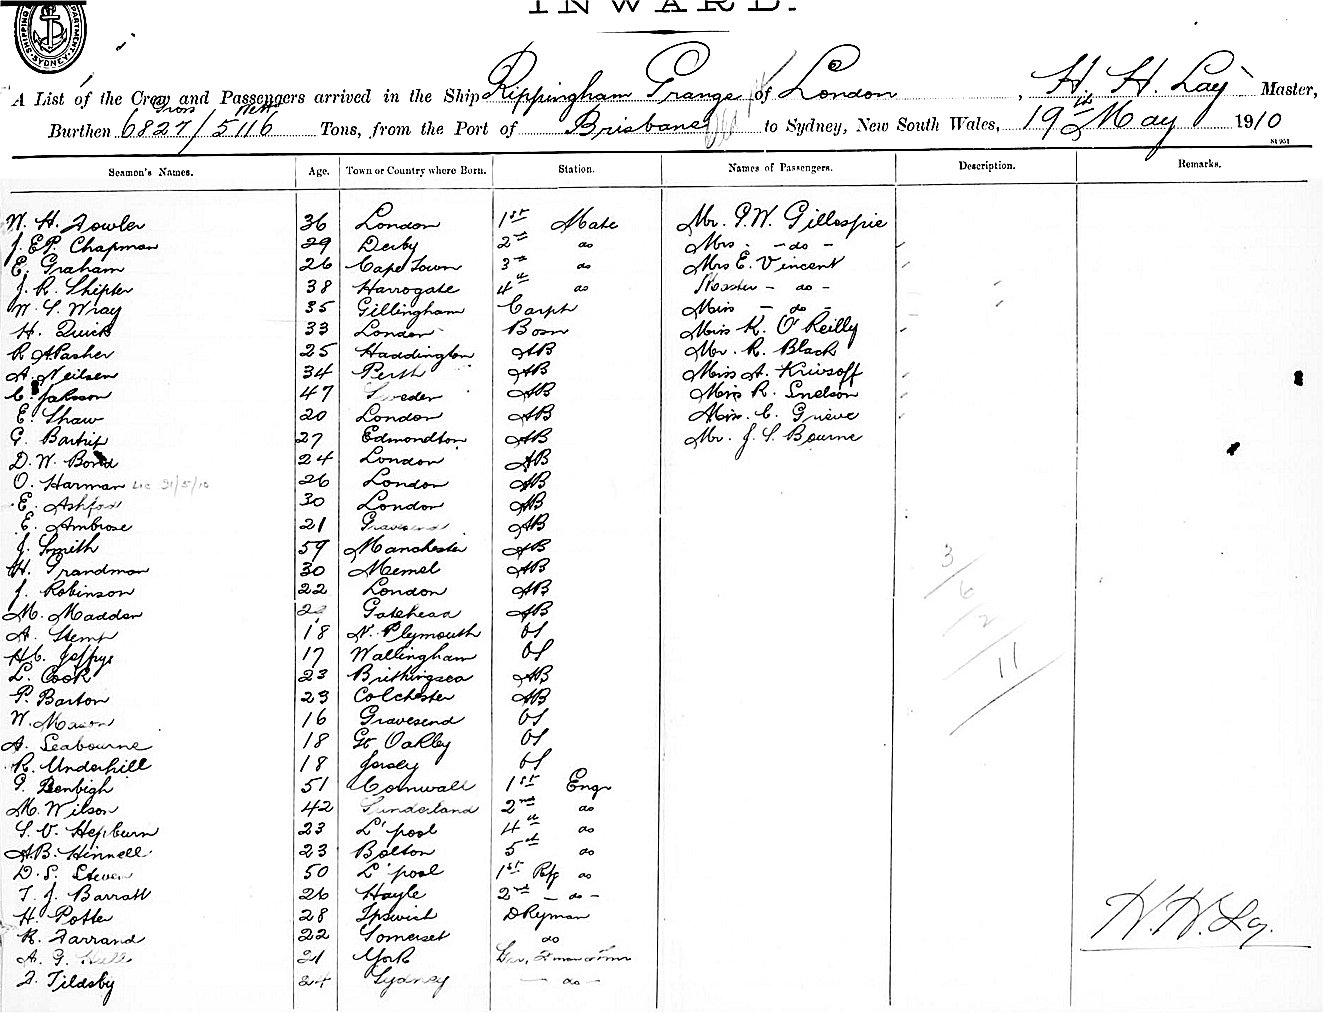 INWARD.
SHIPPING DEPARTMENT SYDNEY
A List of the Crew and Passengers arrived in the Ship Rippingham Grange of London, H. H. Lay Master,
Burthen 6827 Gross / 5116 Nett Tons, from the Port of Brisbane to Sydney, New South Wales, 19th May 1910
Seamen's Names. Age. Town or Country where Born. Station. Names of Passengers. Description. Remarks.
W. H. Fowler 36 London 1st Mate Mr. G. W. Gillespie
J. E. P. Chapman 29 Derby 2nd do Mrs - do -
E. Graham 26 Cape Town 3rd do Mrs E. Vincent
J. R. Shipter 38 Harrogate 4th do Master - do -
W. S. Wray 35 Gillingham Carptr Miss - do -
H. Quick 33 London Bosn Miss K. O'Reilly
R. Pasher 25 Haddington AB Mr. R. Black
A. Neilsen 34 Perth AB Miss A. Krivsoff
C. 47 Sweden AB Miss R. Snelson
E. Shaw 20 London AB Miss. C. Grieve
G. Bartrip 27 Edmondton AB Mr. J. S. Bourne
D. W. Bond 24 London AB
O. Harman 31/5/10 26 London AB
E. Ashford 30 London AB
E. Ambrose 21 Gravesend AB
J. Smith 59 Manchester AB
H. Grandman 30 Memel AB
J. Robinson 22 London AB
M. Madden Gateshead AB
A. Stemp 18 N. Plymouth OS
H. C. Jeffrys 17 Wallingham OS
L. Cook 23 Brithingsea AB
P. Barton 23 Colchester AB
W. Mason 16 Gravesend OS
A. Seabourne 18 Gt Oakley OS
R. Underhill 18 Jersey OS
G. Benbigh 51 Cornwall 1st Engr
M. Wilson 42 Sunderland 2nd do
S. V. Hepburn 23 L'pool 4th do
A. B. Hinnell 23 Bolton 5th do
D. S. Steven 50 L'pool 1st Rfg do
T. J. Barratt 26 Hayle 2nd - do -
H. Potter 28 Ipswich Dkyman
R. Farrand 22 Somerset do
A. G. Hall 21 York
F. Tildsby 24 Sydney - do -
3
6
2
11
H. H. Lay.